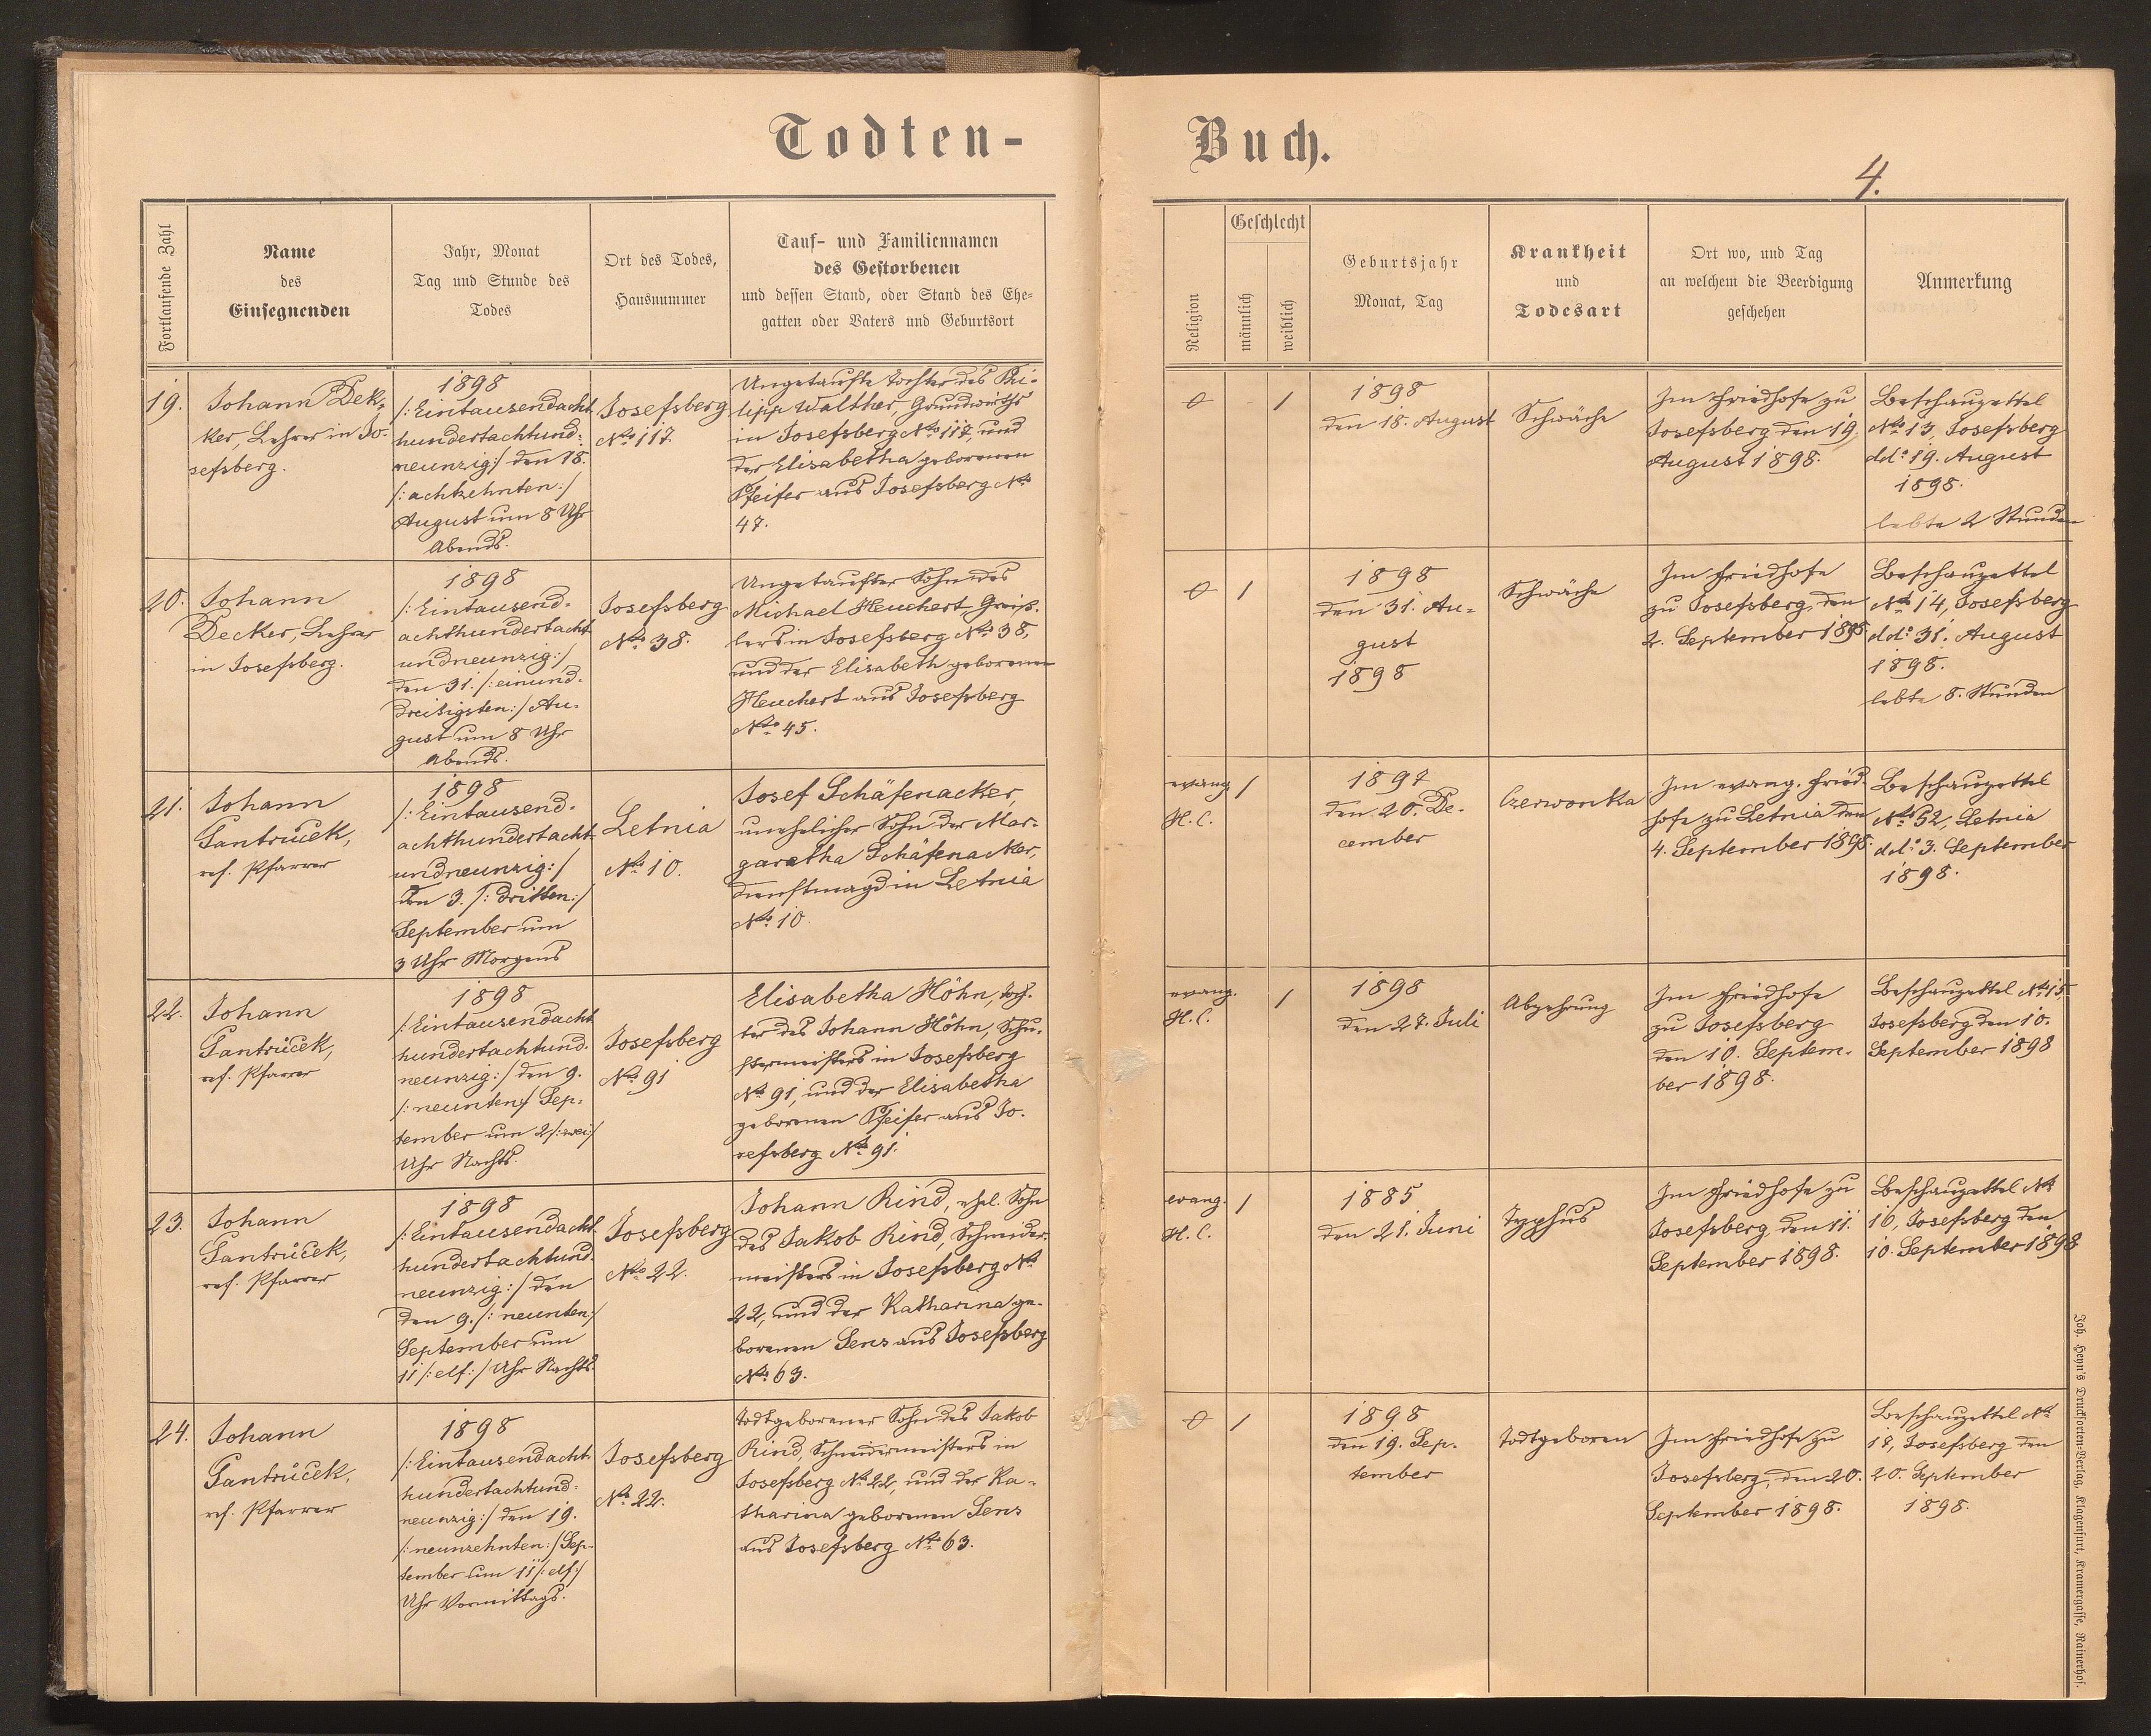 Todten-
Buch.
4.
Fortlaufende Zahl
Name
des
Einsegnenden
Jahr, Monat
Tag und Stunde des
Todes
Ort des Todes,
Hausnummer
Tauf- und Familiennamen
des Gestorbenen
und dessen Stand, oder Stand des Ehe-
gatten oder Vaters und Geburtsort
Religion
Geschlecht
männlich
weiblich
Geburtsjahr
Monat, Tag
Krankheit
und
Todesart
Ort wo, und Tag
an welchem die Beerdigung
geschehen
Anmerkung
19.
Johann Dek-
ker, Lehrer in Jo-
sefsberg.
1898
/:Eintausendacht
hundertachtund-
neunzig:/ den 18.
/:achtzehnten:/
August um 8 Uhr
Abends.
Josefsberg
No 117.
Ungetaufte Tochter des Phi-
lipp Walther, Grundwirths
in Josefsberg No 117, und
der Elisabetha geborenen
Pfeifer aus Josefsberg No
47.
0
1
1898
den 18. August
Schwäche
Im Friedhofe zu
Josefsberg den 19.
August 1898.
Beschauzettel
No 13, Josefsberg
ddo 19. August
1898.
lebte 2 Stunden
20.
Johann
Decker, Lehrer
in Josefsberg.
1898
/:Eintausend-
achthundertacht-
undneunzig:/
den 31. /:einund-
dreißigsten:/ Au-
gust um 8 Uhr
Abends.
Josefsberg
No 38.
Ungetaufter Sohn des
Michael Heuchert, Greiß-
lers in Josefsberg No 38,
und der Elisabeth geborenen
Heuchert aus Josefsberg
No 45.
0
1
1898
den 31. Au-
gust
1898
Schwäche
Im Friedhofe
zu Josefsberg, den
2. September 1898
Beschauzettel
No 14, Josefsberg
ddo 31. August
1898.
lebte 8. Stunden
21.
Johann
Gantrůček,
ref. Pfarrer
1898
/:Eintausend-
achthundertacht-
undneunzig:/
den 3. /:dritten:/
September um
3 Uhr Morgens
Letnia
No 10.
Josef Schäfenacker,
unehelicher Sohn der Mar-
garetha Schäfenacker,
Dienstmagd in Letnia
No 10.
evang.
H. C.
1
1897
den 20. De-
cember
Czerwonka
Im evang. Fried-
hofe zu Letnia den
4. September 1898.
Beschauzettel
No 52, Letnia
ddo 3. September
1898.
22.
Johann
Gantrůček,
ref. Pfarrer
1898
/:Eintausendacht
hundertachtund-
neunzig:/ den 9.
/:neunten:/ Sep-
tember um 2 /:zwei:/
Uhr Nachts.
Josefsberg
No 91
Elisabetha Höhn, Toch-
ter des Johann Höhn, Schu-
stermeisters in Josefsberg
No 91, und der Elisabetha
geborenen Pfeifer aus Jo-
sefsberg No 91.
evang.
H. C.
1
1898
den 27. Juli
Abzehrung
Im Friedhofe
zu Josefsberg
den 10. Septem-
ber 1898.
Beschauzettel No 15
Josefsberg den 10.
September 1898
23.
Johann
Gantrůček,
ref. Pfarrer
1898
/:Eintausendacht-
hundertachtund-
neunzig:/ den
den 9. /:neunten:/
September um
11 /:elf:/ Uhr Nachts.
Josefsberg
No 22.
Johann Rind, ehel. Sohn
des Jakob Rind, Schneider-
meisters in Josefsberg No
22, und der Katharina ge-
borenen Senz aus Josefsberg
No 63.
evang.
H. C.
1
1885
den 21. Juni
Typhus
Im Friedhofe zu
Josefsberg, den 11.
September 1898.
Beschauzettel No
16, Josefsberg den
10. September 1898
24.
Johann
Gantrůček,
ref. Pfarrer
1898
/:Eintausendacht-
hundertachtund-
neunzig:/ den 19.
/:neunzehnten:/ Sep-
tember um 11 /:elf:/
Uhr Vormittags.
Josefsberg
No 22.
Todtgeborener Sohn des Jakob
Rind, Schneidermeisters in
Josefsberg No 22, und der Ka-
tharina geborenen Senz
aus Josefsberg No 63.
0
1
1898
den 19. Sep-
tember
Todtgeboren
Im Friedhofe zu
Josefsberg, den 20.
September 1898.
Beschauzettel No
17, Josefsberg den
20. September
1898.
Joh. Heyn's Drucksorten-Verlag, Klagenfurt, Kramergasse, Rainerhof.